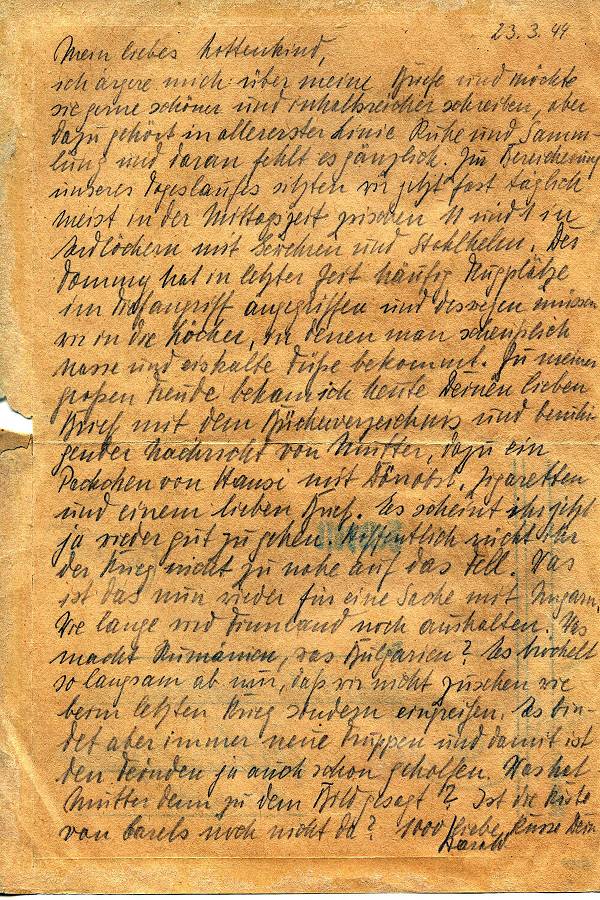 23.3.44
Mein liebes Lottenkind,
ich ärgere mich über meine Briefe und möchte
sie gerne schöner und inhaltsreicher schreiben, aber
dazu gehört in allererster Linie Ruhe und Samm-
lung und daran fehlt es gänzlich. Zur Bereicherung
unseres Tageslaufes sitzen wir jetzt fast täglich
meist in der Mittagszeit zwischen 11 und 1 in
Erdlöchern mit Gewehren und Stahlhelm. Der
Tommy hat in letzter Zeit häufig Flugplätze
im Tiefangriff angegriffen und deswegen müssen
wir in die Löcher, in denen man scheusslich
nasse und eiskalte Füße bekommt. Zu meiner
großen Freude bekam ich heute Deinen lieben
Brief mit dem Bücherverzeichnis und beruhi-
gender Nachricht von Mutter, dazu ein
Päckchen von Hansi mit Dörrobst, Zigaretten
und einem lieben Brief. Es scheint ihr jetzt
ja wieder gut zu gehen. Hoffentlich rückt ihr
der Krieg nicht zu nahe auf das Fell. Was
ist das nun wieder für eine Sache mit Ungarn.
Wie lange wird Finnland noch aushalten. Was
macht Rumänien, was Bulgarien? Es bröckelt
so langsam ab nur, daß wir nicht zusehen wie
beim letzten Krieg sondern eingreifen. Es bin-
det aber immer neue Truppen und damit ist
den Feinden ja auch schon geholfen. Was hat
Mutter denn zu dem Bild gesagt? Ist die Kiste
von Barels noch nicht da? 1000 liebe Küsse Dein
Harald